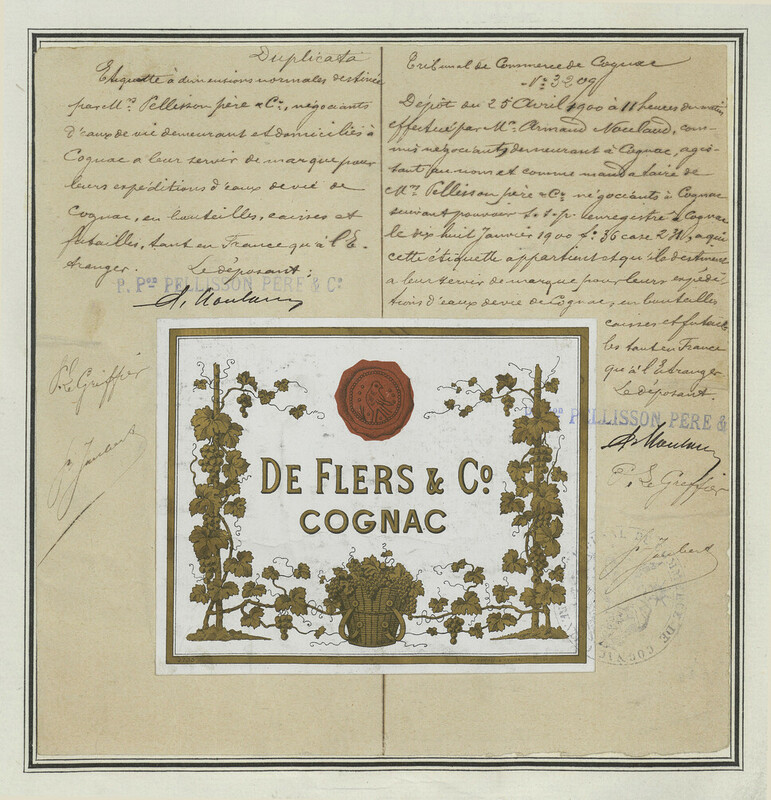 Duplicata
Etiquette à dimensions normales destinée
par Mrs Pellisson père & Co, négociants
d'eaux de vie demeurant et domiciliés à
Cognac a leur servir de marque pour
leurs expéditions d'eaux de vie de
Cognac, en bouteilles, caisses et
futailles, tant en France qu'à l'E-
tranger. Le déposant:
P. Pon PELLISSON PERE & Co
P. Le Greffier
Tribunal de Commerce de Cognac
No 3209
Dépôt du 25 Avril 1900 à 11 heures du matin
effectué par Mr Armand, com-
mis négociant, demeurant à Cognac, agis-
sant au nom et comme mandataire de
Mrs Pellisson père & Co négociants à Cognac
suivant pouvoir s.s.p. enregistré à Cognac
le dix huit Janvier 1900 fo 36 case, a qui
cette étiquette appartient et qu'ils destinent
a leur servir de marque pour leurs expédi-
tions d'eaux de vie de Cognac, en bouteilles
caisses et futail-
les tant en France
qu'à l'Etranger
Le déposant.
PELLISSON PERE &
P. Le Greffier
DE FLERS & Co
COGNAC